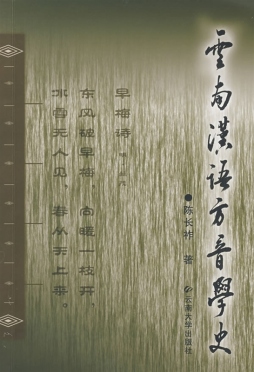 雲南漢語方音學史
●陈长祚 著
云南大学出版社
早梅诗
东风破早梅，向暖一枝开，
冰雪无人见，春从天上来。